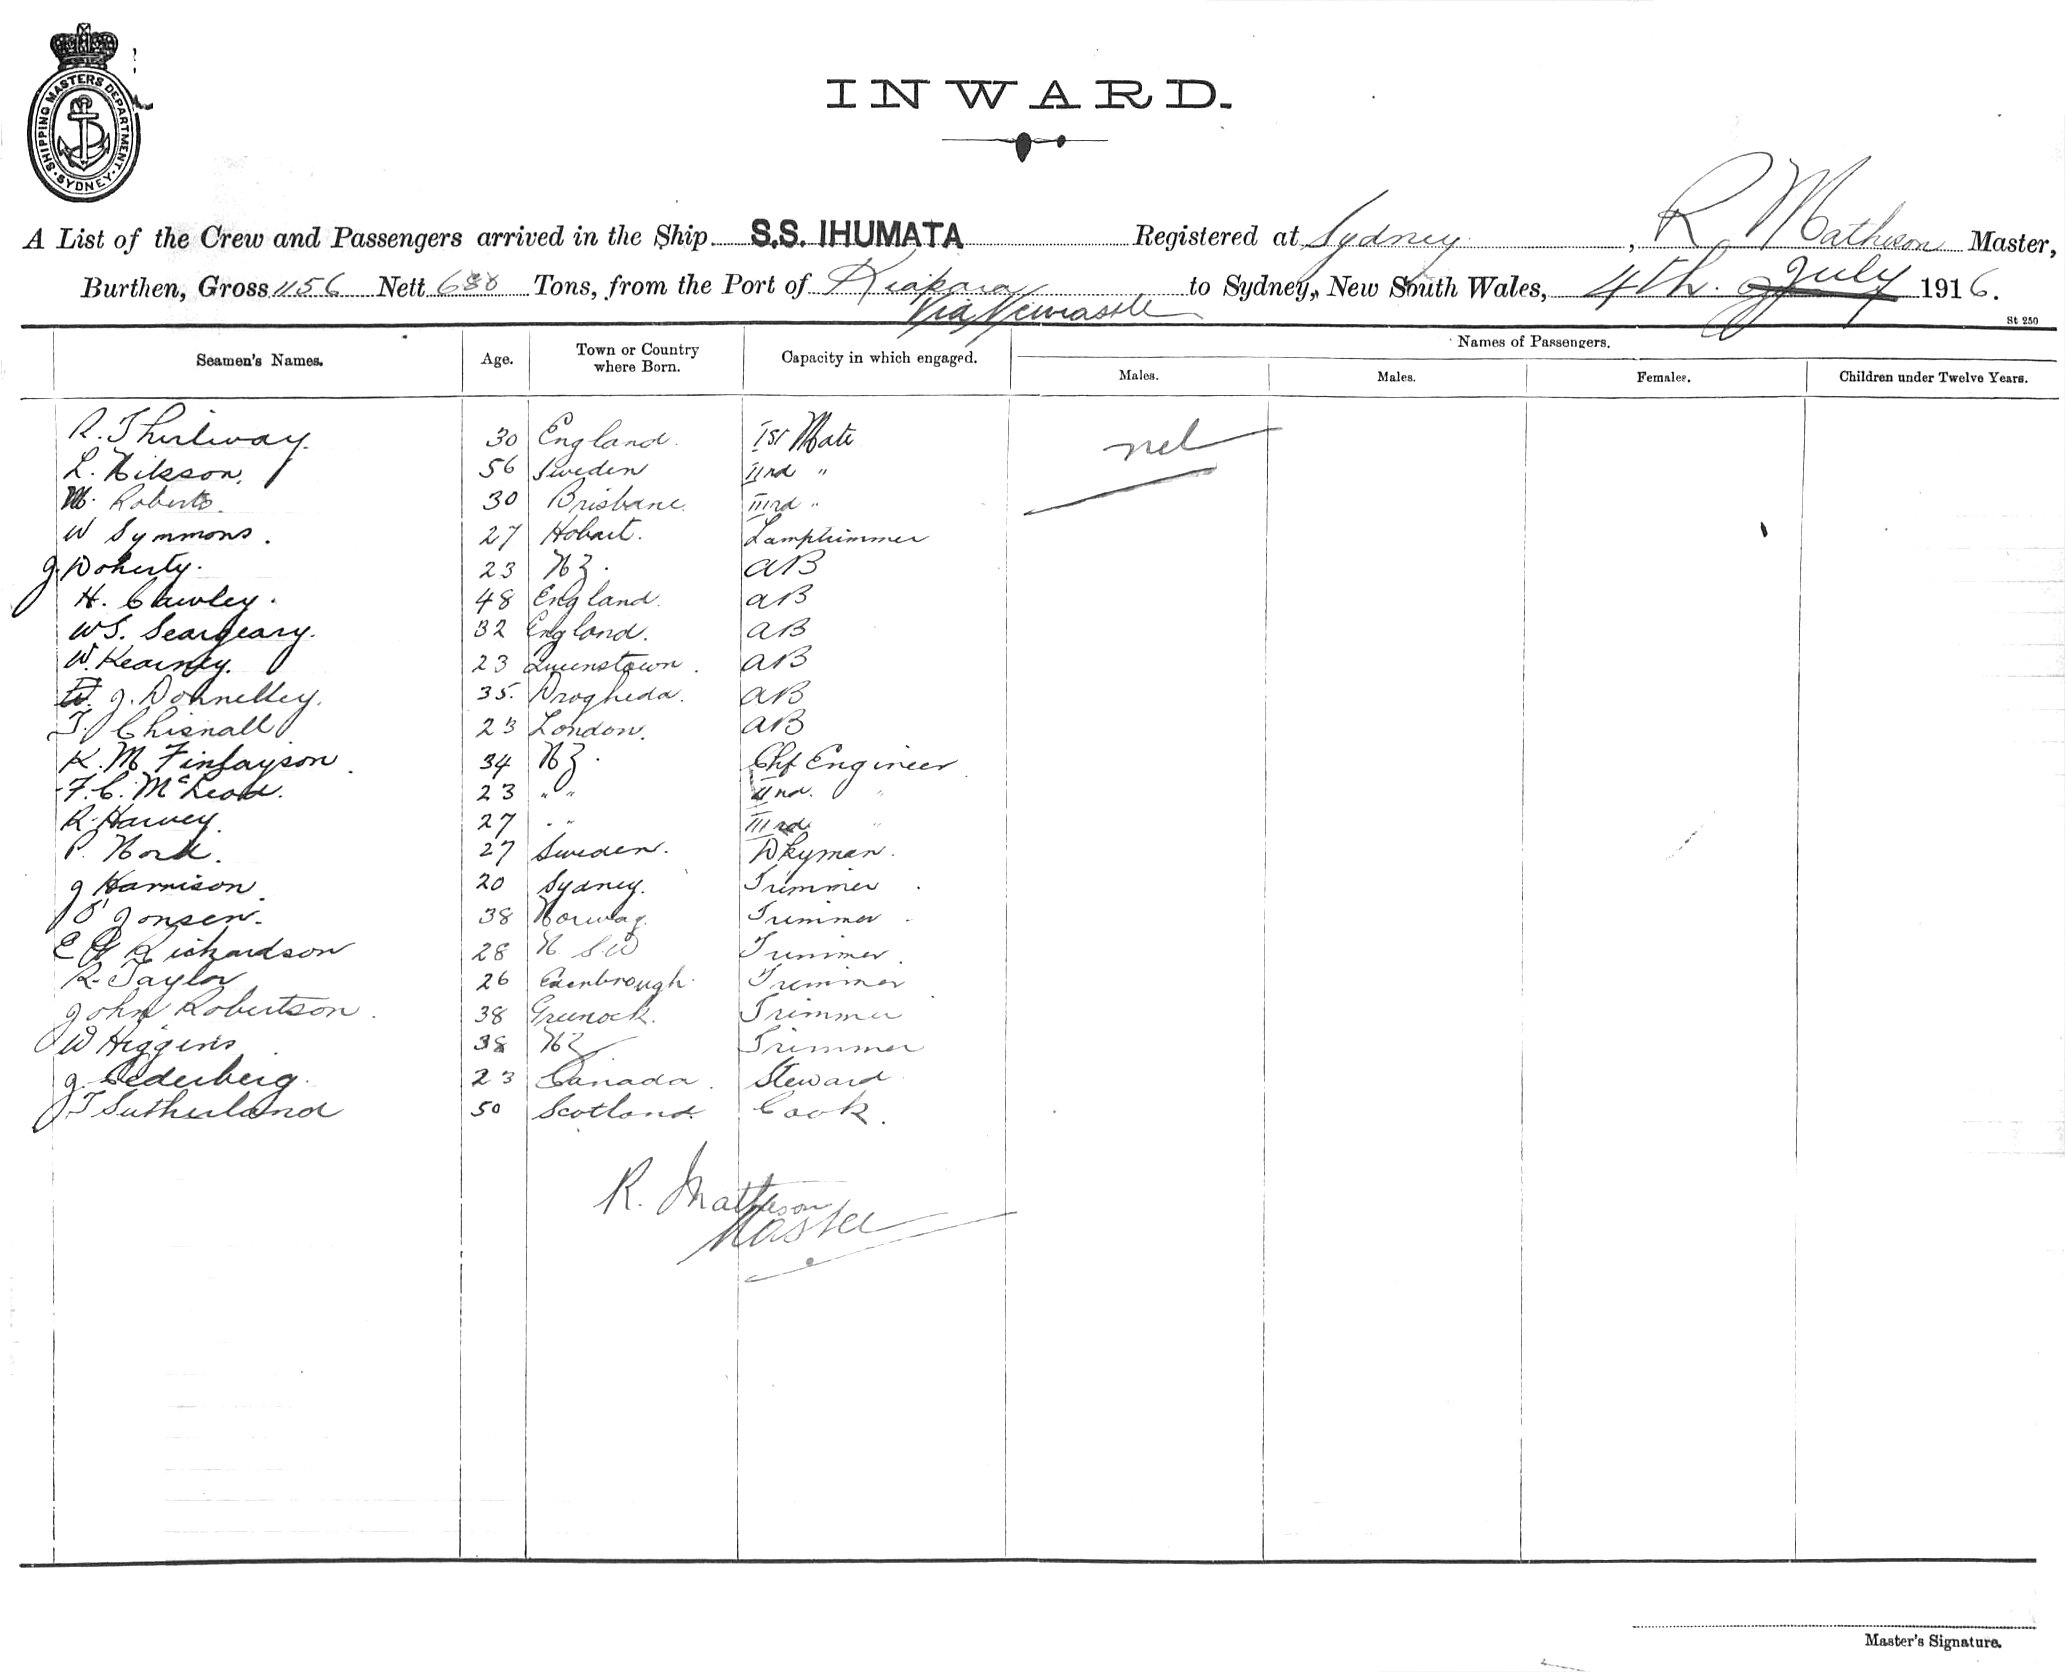 SHIPPING MASTERS DEPARTMENT
SYDNEY
INWARD.
A List of the Crew and Passengers arrived in the Ship S.S. IHUMATA Registered at Sydney, R Matheson Master,
Burthen, Gross 1156 Nett 680 Tons, from the Port of to Sydney, New South Wales, 4th. July 1916.
Via Newcastle
St 250
Seamen's Names. Age. Town or Country where Born. Capacity in which engaged. Names of Passengers.
Males. Males. Females. Children under Twelve Years.
R. Thirlway. 30 England. Ist Mate nil
L. Nilsson. 56 Sweden IInd "
M. Roberts. 30 Brisbane. IIIrd "
W Symmons. 27 Hobart. Lamptrimmer
J. Doherty. 23 NZ. AB
H. Cawley. 48 England. AB
WS. Seargeary. 32 England. AB
W. Kearney. 23 Queenstown. AB
J. Donnelley. 35. Drogheda. AB
T. Chisnall 23 London. AB
K. M Finlayson. 34 NZ. Chf Engineer
F. C. McLeod. 23 " " IInd. "
R. Harvey. 27 " " IIIrd "
P. Nord. 27 Sweden. Dkyman.
J Harrison. 20 Sydney. Trimmer.
Jonsen. 38 Norway. Trimmer.
E Richardson 28 N SW Trimmer.
R. Taylor 26 Edenbrough. Trimmer.
John Robertson. 38 Greenock. Trimmer
W Higgins 38 NZ Trimmer
J. Cederberg. 23 Canada. Steward
J T Sutherland 50 Scotland. Cook.
R. Matheson
Master
Master's Signature.